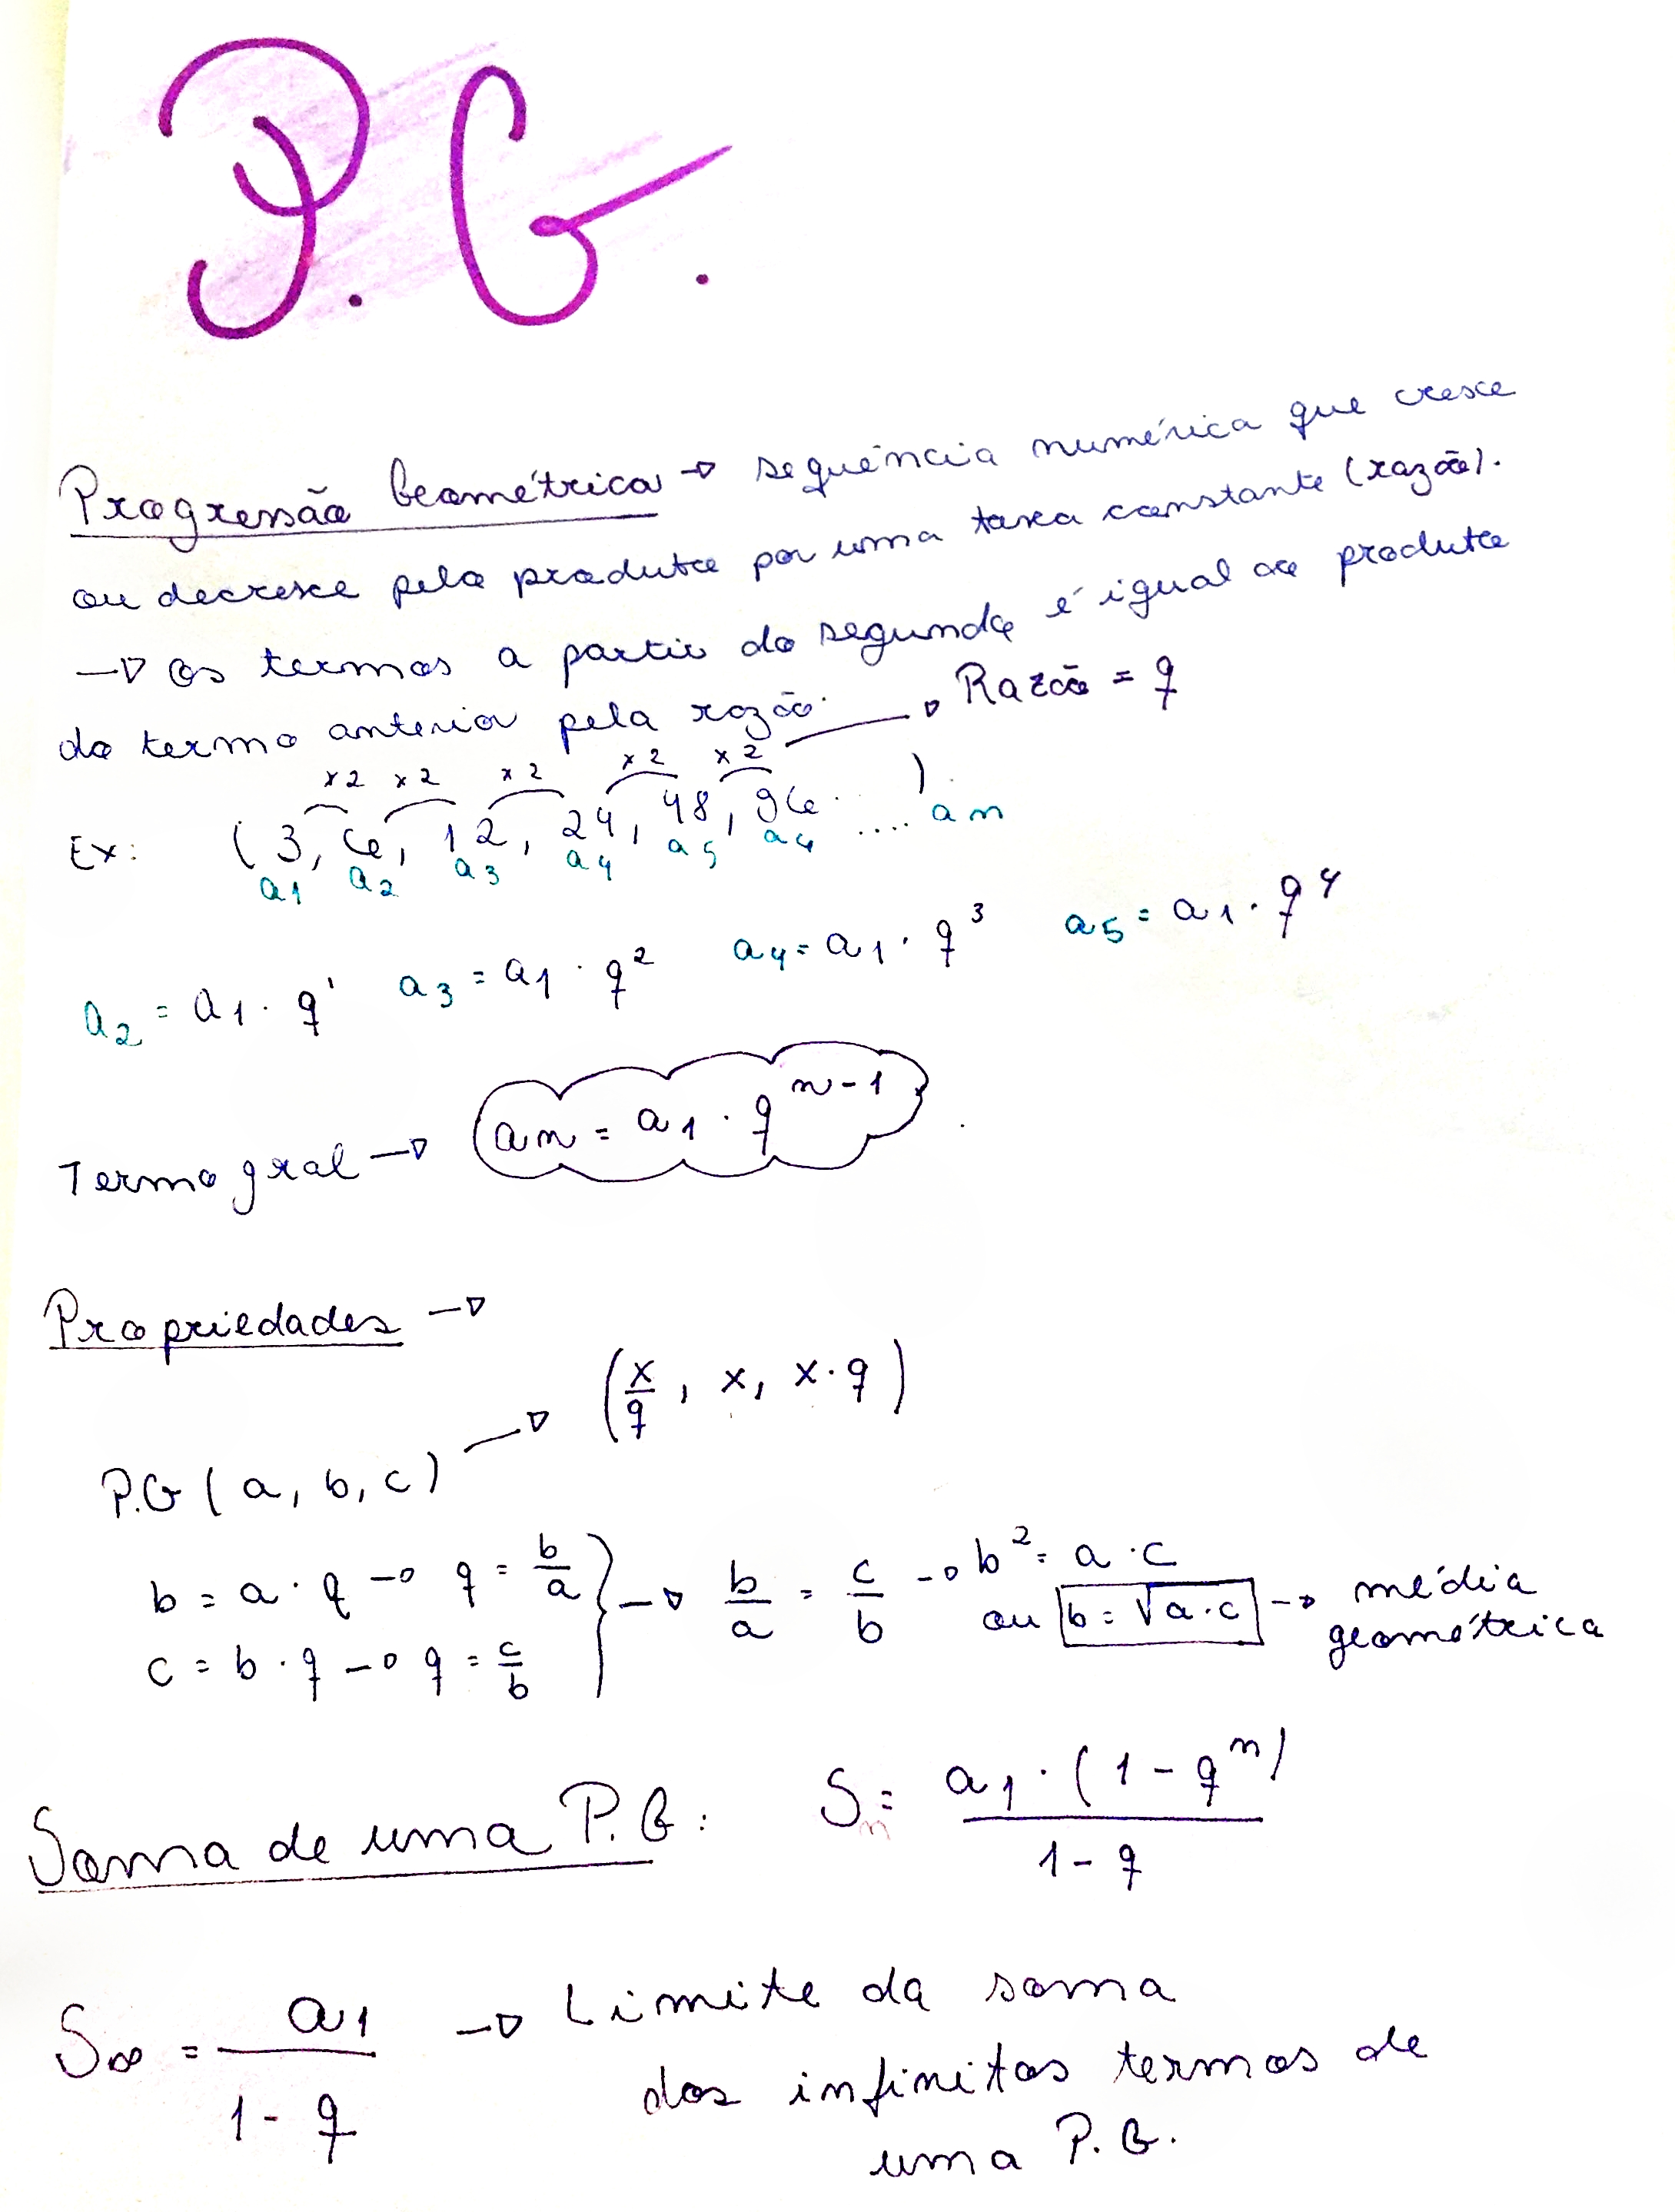 P.G.
Progressão Geométrica → sequência numérica que cresce
ou decresce pelo produto por uma taxa constante (razão).
→ Os termos a partir do segundo é igual ao produto
do termo anterior pela razão. → Razão = q
x2 x2 x2 x2 x2
Ex: (3, 6, 12, 24, 48, 96 .... ).
a1 a2 a3 a4 a5 a4 an
a2 = a1 · q¹ a3 = a1 · q² a4 = a1 · q³ a5 = a1 · q⁴
Termo gral → an = a1 · q^(n-1)
Propriedades →
P.G (a, b, c) → (x/q, x, x·q)
b = a · q → q = b/a } → b/a = c/b → b² = a · c
c = b · q → q = c/b ou b = √a·c → média geométrica
Soma de uma P.G: Sn = a1 · (1 - qⁿ) / 1 - q
S∞ = a1 / 1 - q → Limite da soma
dos infinitos termos de
uma P.G.